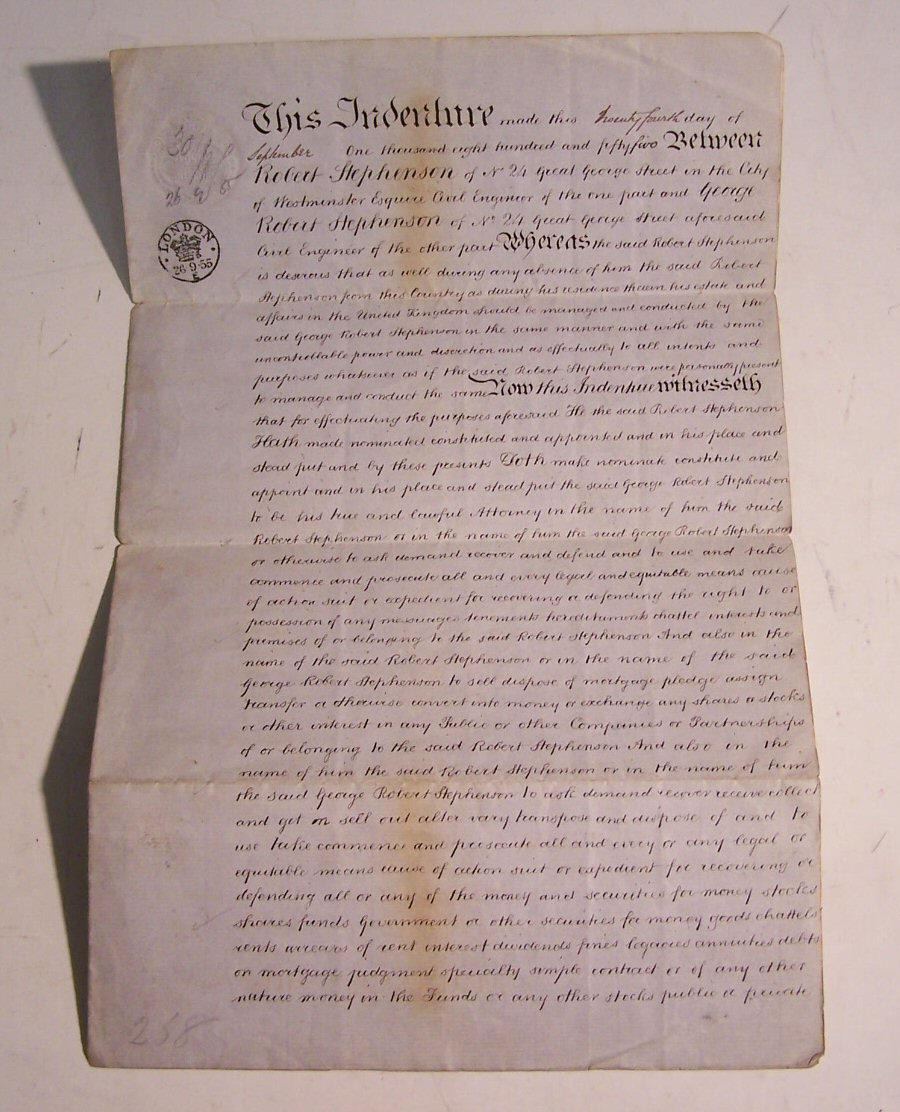 This Indenture made this Twenty fourth day of
September One thousand eight hundred and fifty five Between
Robert Stephenson of No 24 Great George Street in the City
of Westminster Esquire Civil Engineer of the one part and George
Robert Stephenson of No 24 Great George Street aforesaid
Civil Engineer of the other part Whereas the said Robert Stephenson
is desirous that as well during any absence of him the said Robert
Stephenson from this Country as during his residence therein his estate and
affairs in the United Kingdom should be managed and conducted by the
said George Robert Stephenson in the same manner and with the same
uncontrollable power and discretion and as effectually to all intents and
purposes whatsoever as if the said Robert Stephenson were personally present
to manage and conduct the same Now this Indenture witnesseth
that for effectuating the purposes aforesaid He the said Robert Stephenson
Hath made nominated constituted and appointed and in his place and
stead put and by these presents Doth make nominate constitute and
appoint and in his place and stead put the said George Robert Stephenson
to be his true and lawful Attorney in the name of him the said
Robert Stephenson or in the name of him the said George Robert Stephenson
or otherwise to ask demand recover and defend and to use and take
commence and prosecute all and every legal and equitable means cause
of action suit or expedient for recovering or defending the right to or
possession of any messuages tenements hereditaments chattel interests and
premises of or belonging to the said Robert Stephenson And also in the
name of the said Robert Stephenson or in the name of the said
George Robert Stephenson to sell dispose of mortgage pledge assign
transfer or otherwise convert into money or exchange any shares or stocks
or other interest in any Public or other Companies or Partnerships
of or belonging to the said Robert Stephenson And also in the
name of him the said Robert Stephenson or in the name of him
the said George Robert Stephenson to ask demand recover receive collect
and get in sell out alter vary transpose and dispose of and to
use take commence and prosecute all and every or any legal or
equitable means cause of action suit or expedient for recovering or
defending all or any of the money and securities for money stocks
shares funds Government or other securities for money goods chattels
rents arrears of rent interest dividends fines legacies annuities debts
on mortgage judgment specialty simple contract or of any other
nature money in the Funds or any other stocks public or private
30/
26 9 5
LONDON
26·9·55
258